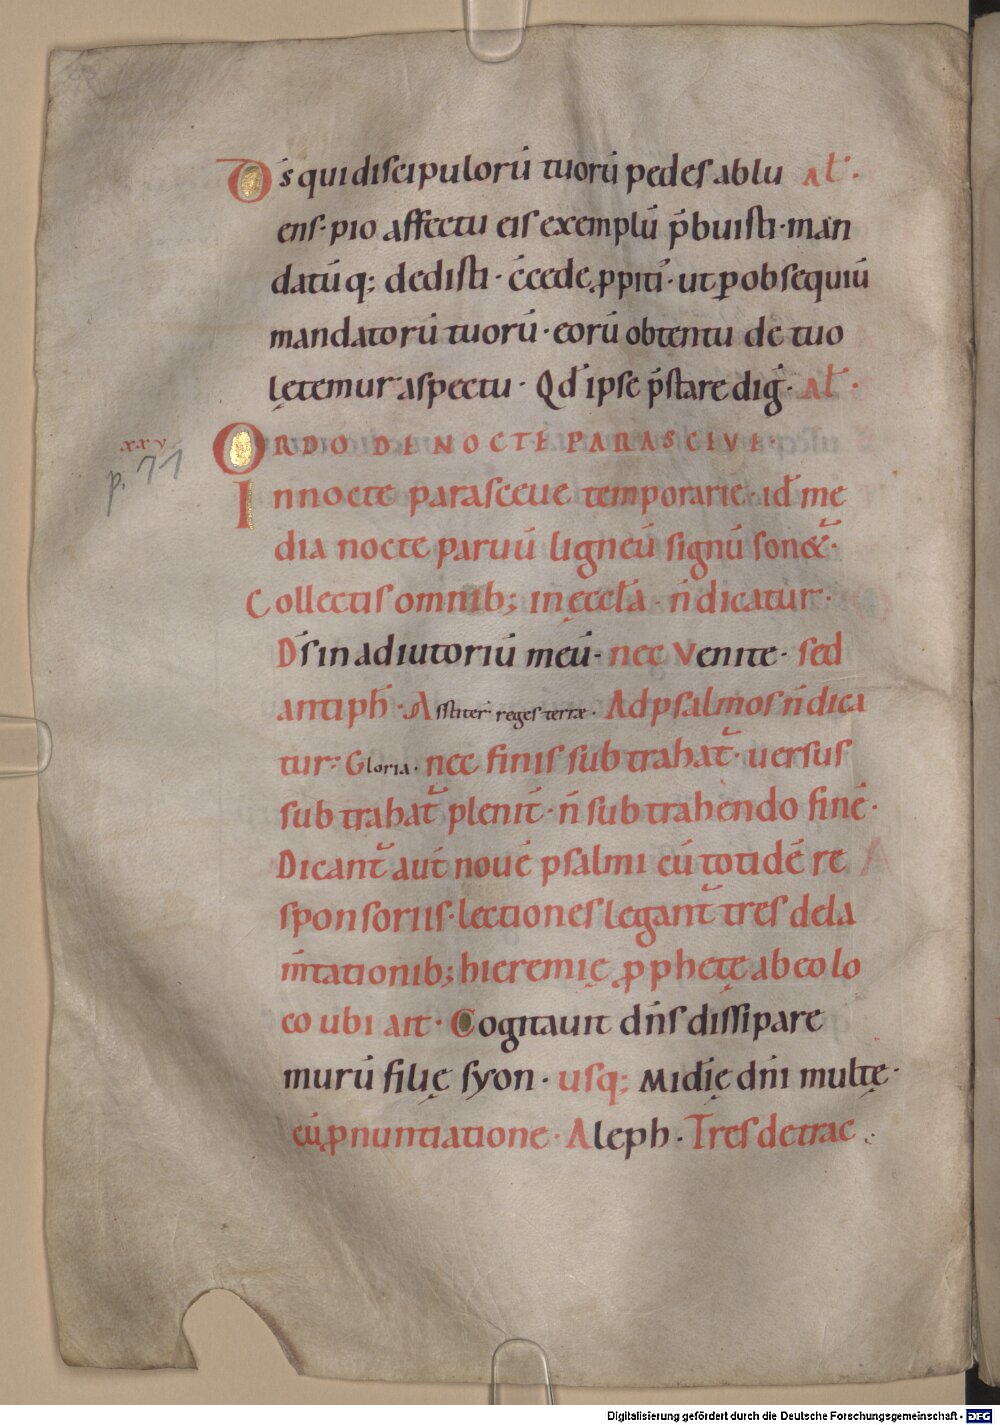 D̄s qui discipulorū tuorū pedes ablu al̄.
ens· pio affectu eis exemplū p̄buisti· man
datūq; dedisti· c̄cede ꝓpiti᾽· ut ꝑ obsequiū
mandatorū tuorū· eorū obtentu de tuo
lętemur aspectu· Qd̄ ipse p̄stare diḡ· al̄·
xxv
p. 71
ORDO DE NOCTE PARASCIVE·
In nocte parasceue temporarie· id̄ me
dia nocte paruū ligneū signū son&᷑·
Collectis omnib; in ęccl̄a· n̄ dicatur·
D̄s in adiutoriū meū· nec Venite· sed
antiph̄· Astiter̄ reges terræ· Ad psalmos n̄ dica
tur· Gloria· nec finis subtrahat᷑· uersus
subtrahat᷑ plenit̄· n̄ subtrahendo finē·
Dicant᷑ aut̄ nouē psalmi cū totidē re
sponsoriis· lectiones legant᷑ tres de la
m̄tationib; hieremię ꝓphetę ab eo lo
co ubi ait· Cogitauit dn̄s dissipare
murū filię syon· usq; Mid̄ię dn̄i multę·
cū ꝓnuntiatione· Aleph· Tres de trac
Digitalisierung gefördert durch die Deutsche Forschungsgemeinschaft - DFG